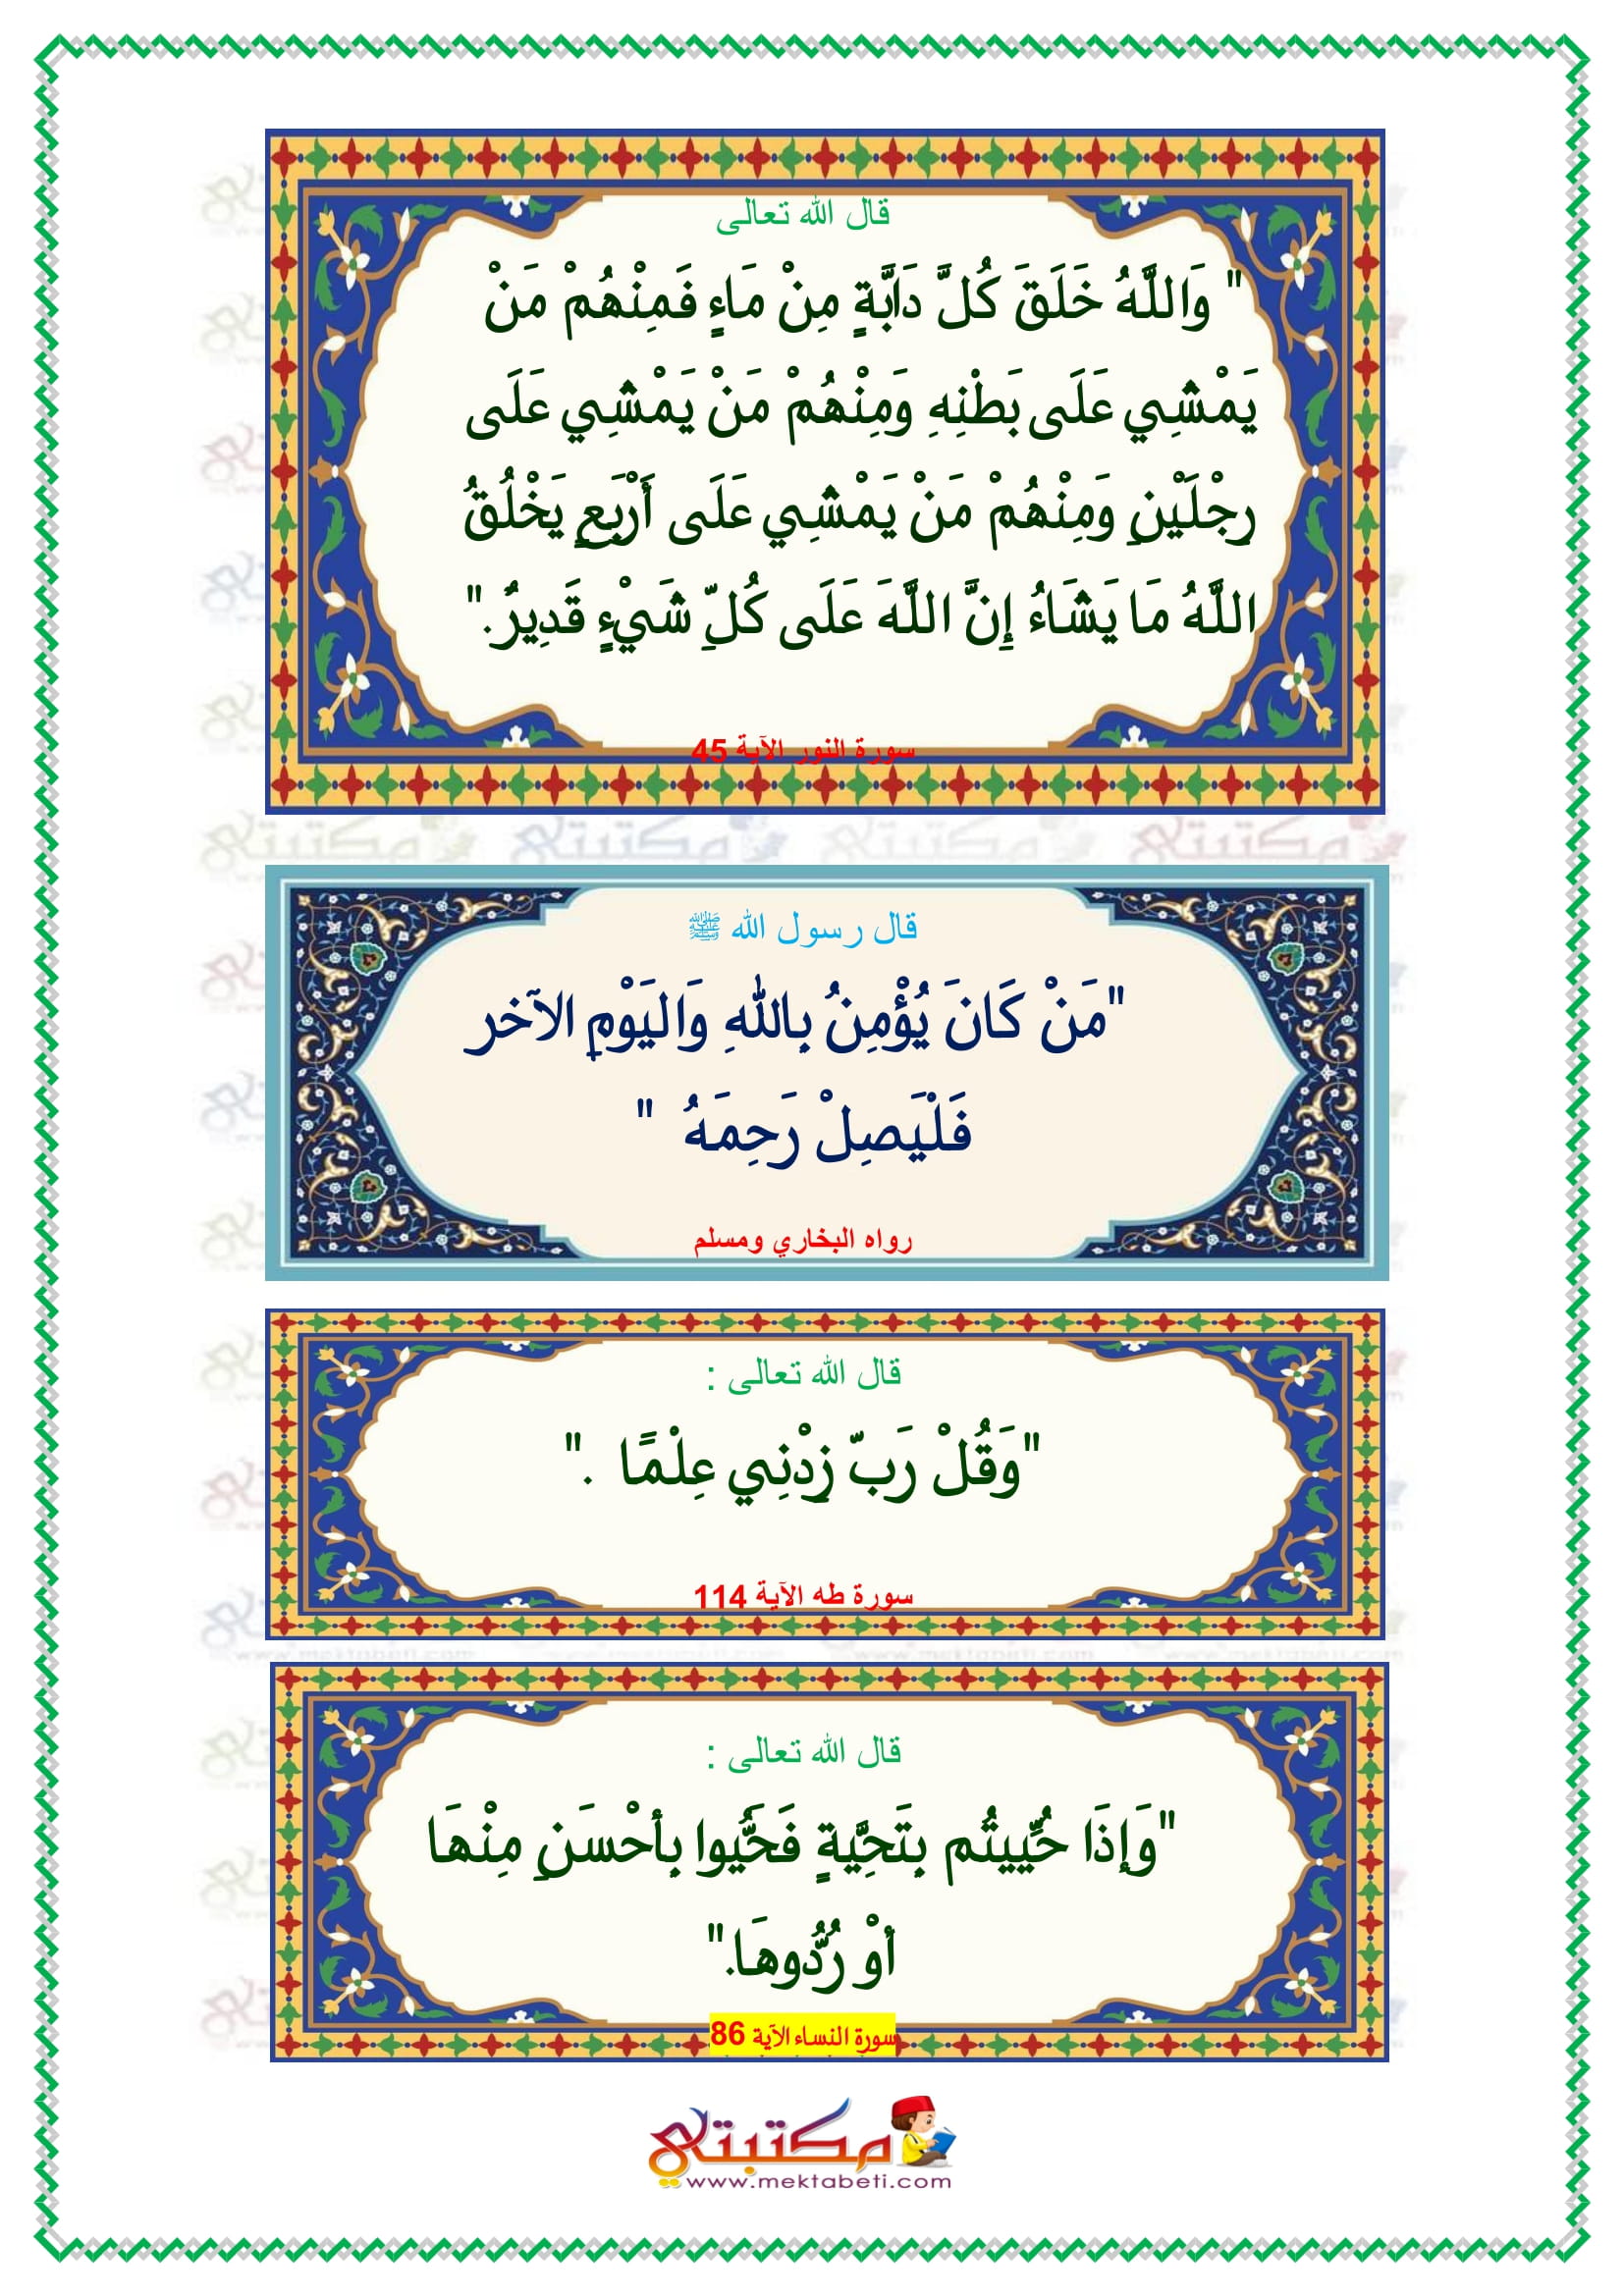 قال الله تعالى
" وَاللَّهُ خَلَقَ كُلَّ دَابَّةٍ مِنْ مَاءٍ فَمِنْهُمْ مَنْ
يَمْشِي عَلَى بَطْنِهِ وَمِنْهُمْ مَنْ يَمْشِي عَلَى
رِجْلَيْنِ وَمِنْهُمْ مَنْ يَمْشِي عَلَى أَرْبَعٍ يَخْلُقُ
اللَّهُ مَا يَشَاءُ إِنَّ اللَّهَ عَلَى كُلِّ شَيْءٍ قَدِيرٌ."
سورة النور الآية 45
قال رسول الله ﷺ
"مَنْ كَانَ يُؤْمِنُ بِاللهِ وَاليَوْمِ الآخر
فَلْيَصِلْ رَحِمَهُ "
رواه البخاري ومسلم
قال الله تعالى :
"وَقُلْ رَبِّ زِدْنِي عِلْمًا ."
سورة طه الآية 114
قال الله تعالى :
"وَإِذَا حُيِّيتُم بِتَحِيَّةٍ فَحَيُّوا بِأحْسَنِ مِنْهَا
أوْ رُدُّوهَا."
سورة النساء الآية 86
مكتبتي
www.mektabeti.com